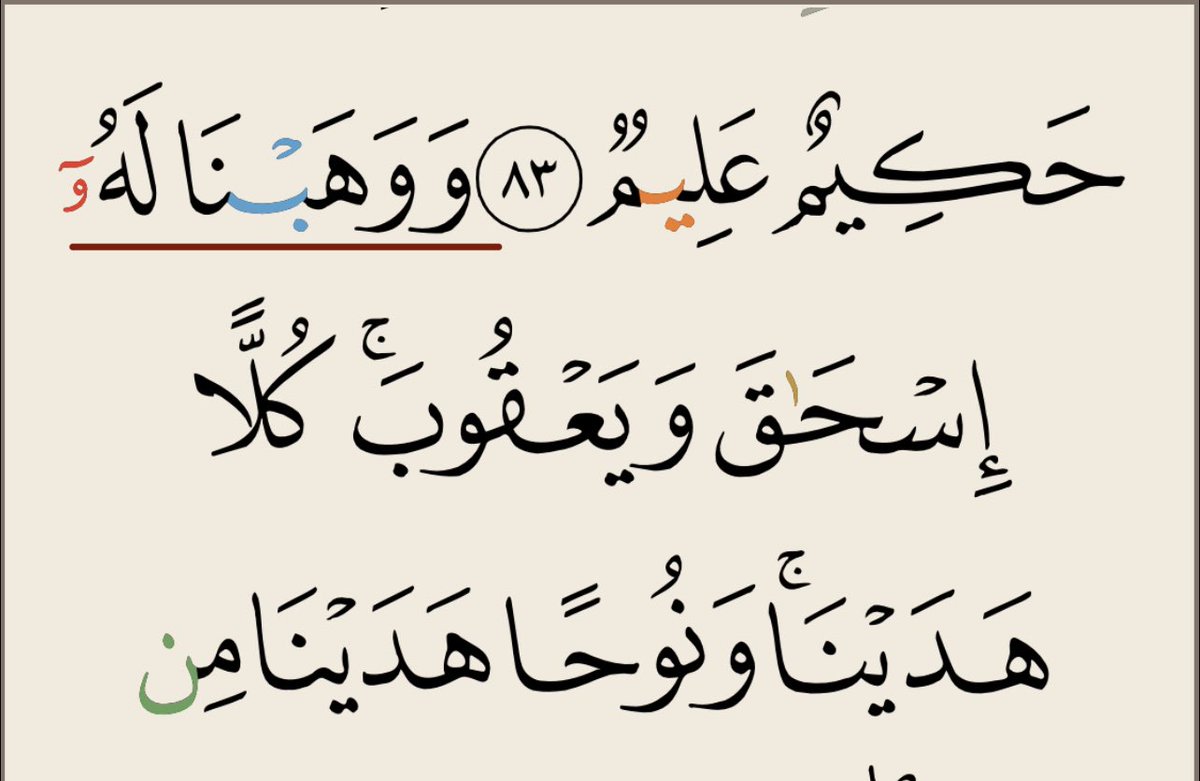 حَكِيمٌ عَلِيمٌۭ ٨٣ وَوَهَبْنَا لَهُۥٓ
إِسْحَـٰقَ وَيَعْقُوبَ ۚ كُلًّا
هَدَيْنَا ۚ وَنُوحًا هَدَيْنَا مِن